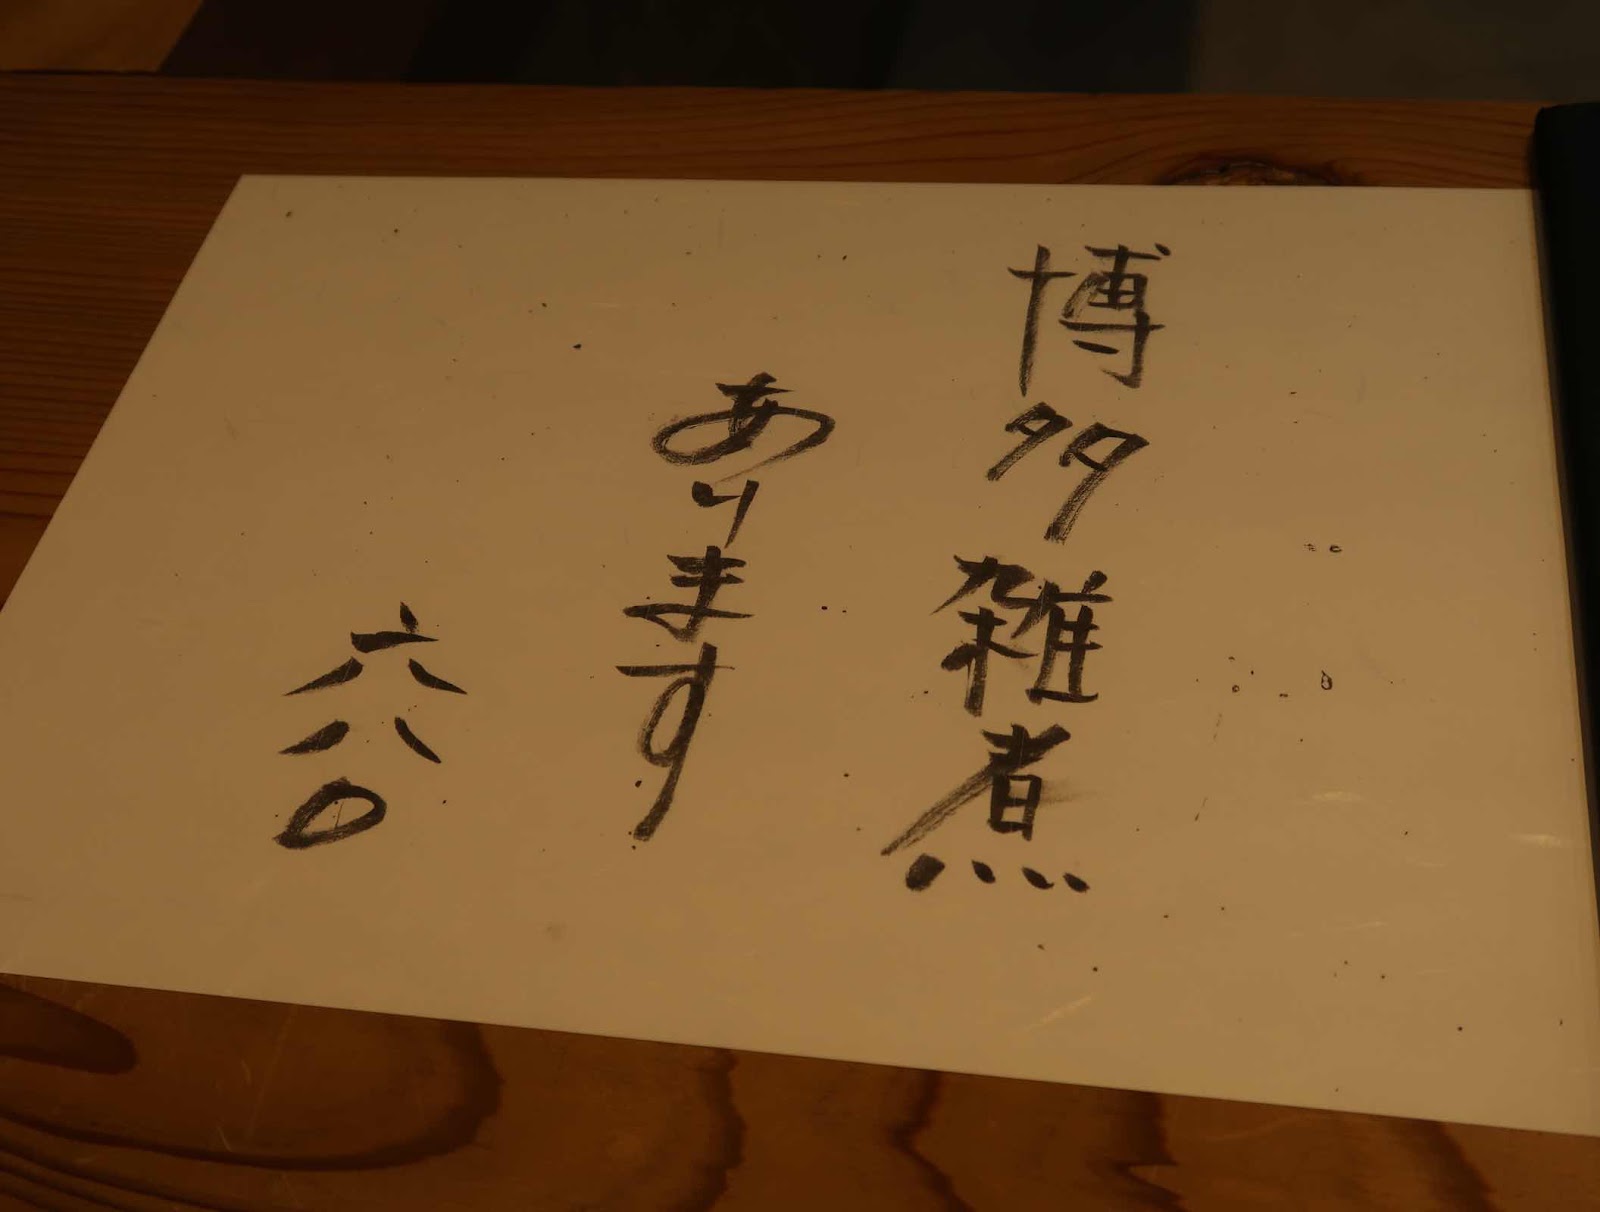 博多雑煮
あります
六八〇